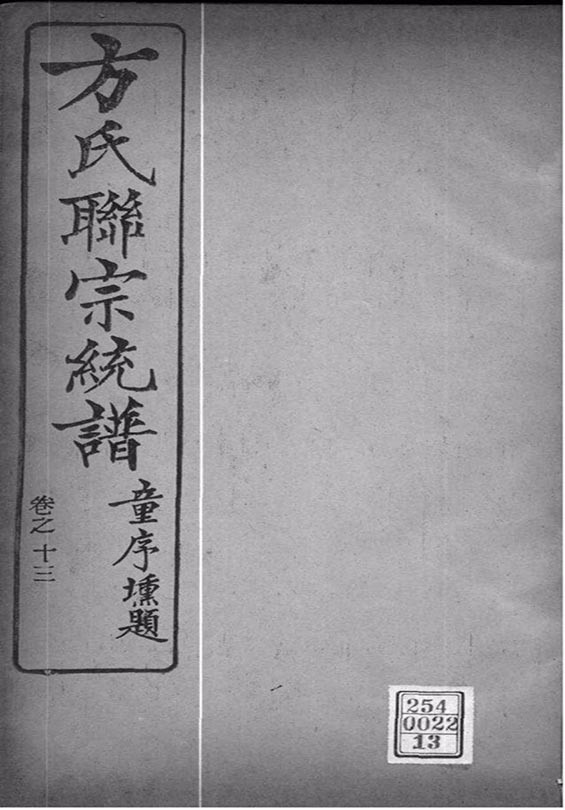 方氏聯宗統譜
童序壎題
卷之十三
254
0022
13